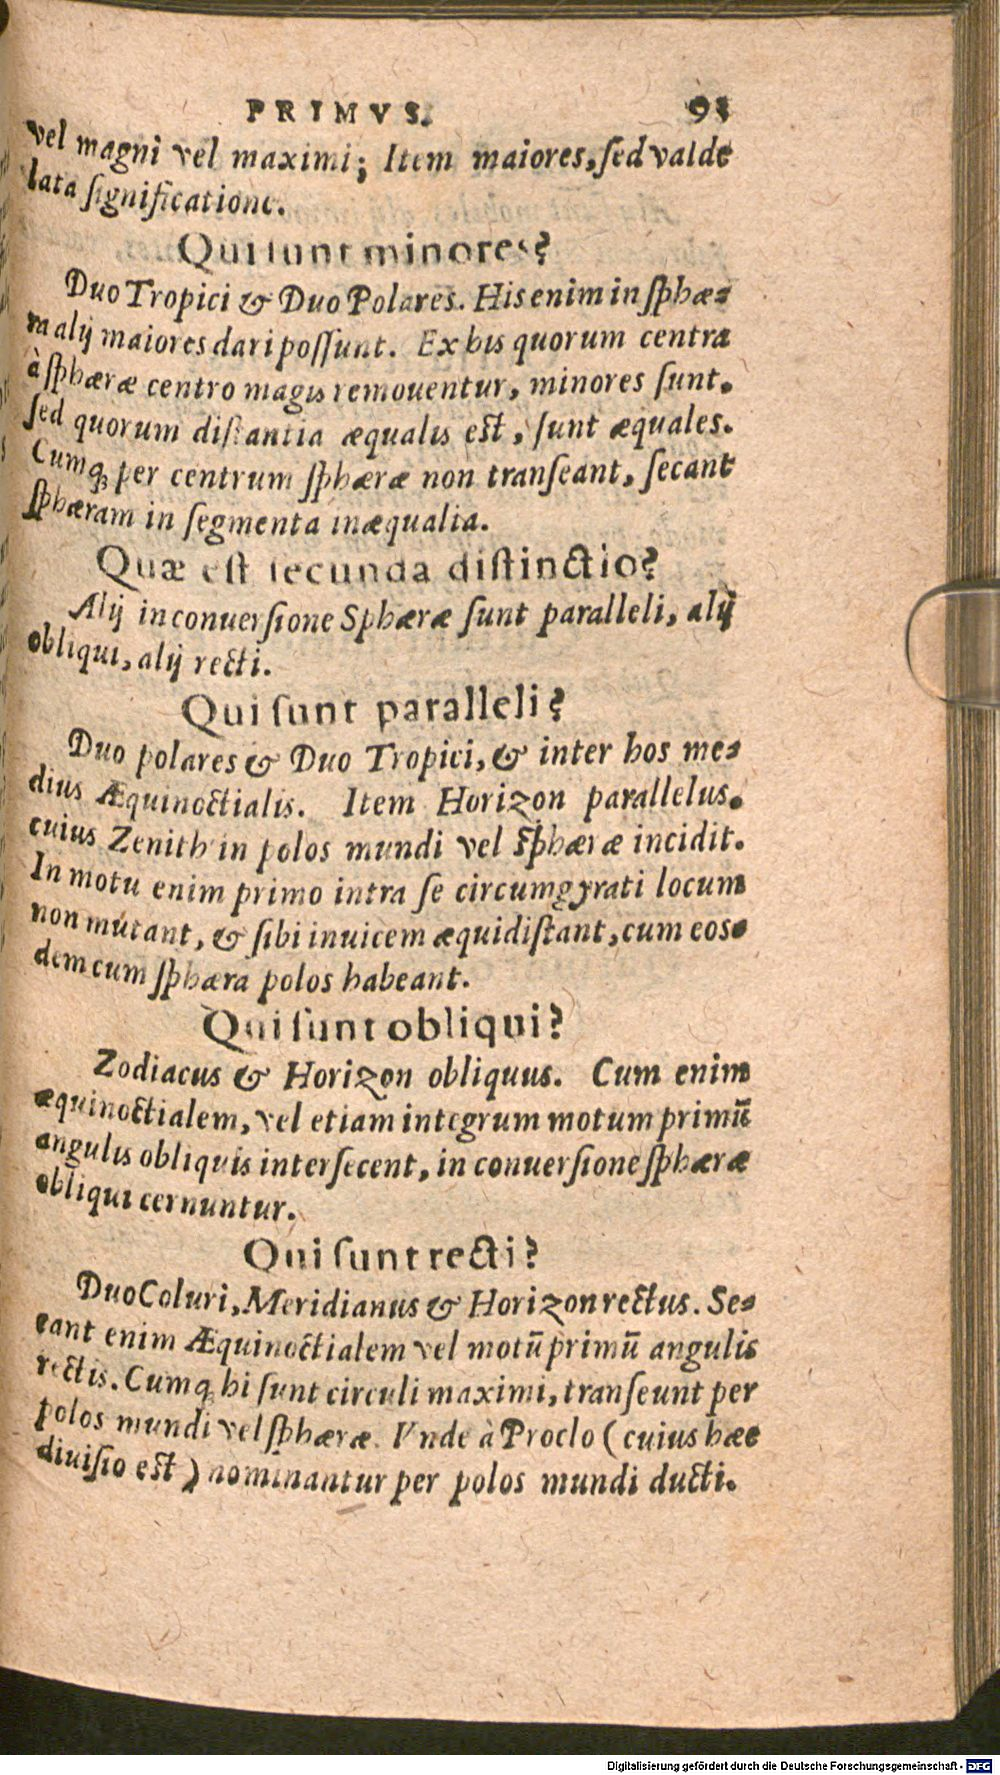 PRIMVS. 93
vel magni vel maximi; Item maiores, sed valde
lata significatione.
Qui sunt minores?
Duo Tropici & Duo Polares. His enim in sphæ-
ra alij maiores dari possunt. Ex his quorum centra
à sphæræ centro magis remouentur, minores sunt.
sed quorum distantia æqualis est, sunt æquales.
Cumq; per centrum sphæræ non transeant, secant
sphæram in segmenta inæqualia.
Quæ est secunda distinctio?
Alij in conuersione Sphæræ sunt paralleli, alij
obliqui, alij recti.
Qui sunt paralleli?
Duo polares & Duo Tropici, & inter hos me-
dius Æquinoctialis. Item Horizon parallelus.
cuius Zenith in polos mundi vel sphæræ incidit.
In motu enim primo intra se circumgyrati locum
non mutant, & sibi inuicem æquidistant, cum eos-
dem cum sphæra polos habeant.
Qui sunt obliqui?
Zodiacus & Horizon obliquus. Cum enim
æquinoctialem, vel etiam integrum motum primũ
angulis obliquis intersecent, in conuersione sphæræ
obliqui cernuntur.
Qui sunt recti?
Duo Coluri, Meridianus & Horizon rectus. Se-
cant enim Æquinoctialem vel motũ primũ angulis
rectis. Cumq; hi sunt circuli maximi, transeunt per
polos mundi vel sphæræ. Vnde à Proclo (cuius hæc
diuisio est) nominantur per polos mundi ducti.
Digitalisierung gefördert durch die Deutsche Forschungsgemeinschaft - DFG